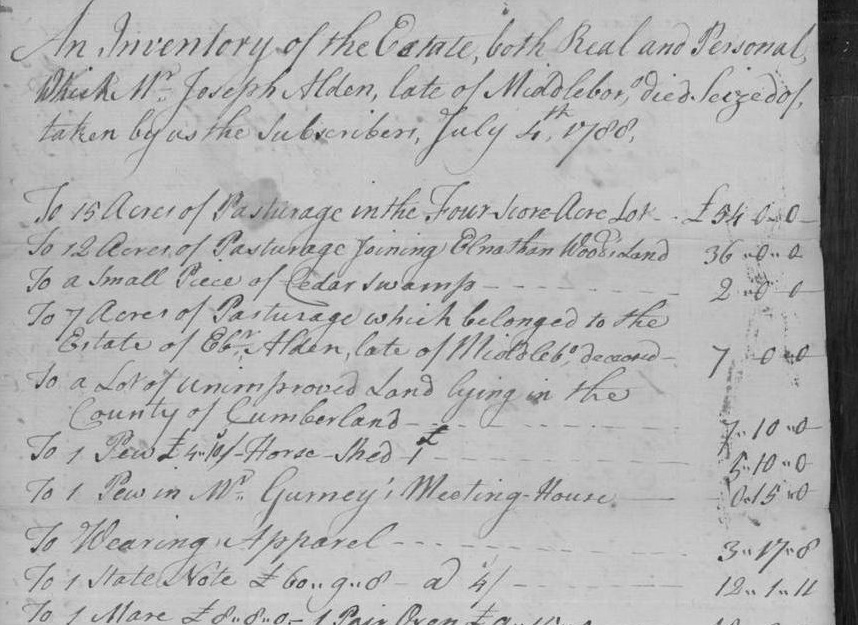 An Inventory of the Estate, both Real and Personal,
which Mr. Joseph Alden, late of Middleboro, died Seized of,
taken by us the Subscribers, July 4th, 1788,
To 15 Acres of Pasturage in the Four score Acre Lot - - £54-0-0-
To 12 Acres of Pasturage Joining Elnathan Wood's Land 36-0-0
To a Small Piece of Cedar Swamp - - - - - - - 2-0-0
To 7 Acres of Pasturage which belonged to the
Estate of Ebr. Alden, late of Middlebo, deceased - 7 0-0
To a Lot of unimproved Land lying in the
County of Cumberland - - - - - - - 7-10-0
To 1 Pew £4-10/- Horse-Shed 1£ - - - - - 5-10-0
To 1 Pew in Mr. Gurney's Meeting-House - 0-15-0
To Wearing Apparel - - - - - - - 3-17-8
To 1 State Note £60-9-8 - a 4/ - - - - 12-1-11
To 1 Mare £8-8-0- 1 Pair Oxen